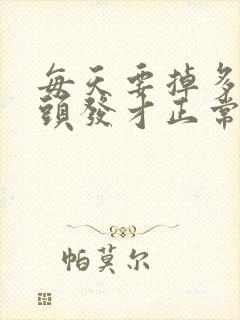 每天要掉多
頭發才正常
帕莫尔